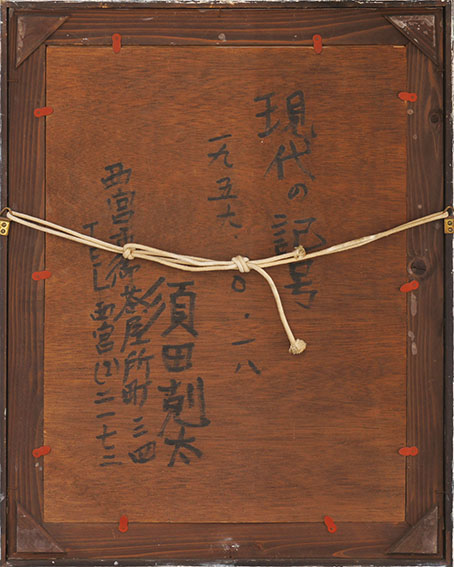 現代の記号
一九五九・一〇・一八
須田剋太
西宮市御茶屋所町三四
TEL西宮(2)二一七三